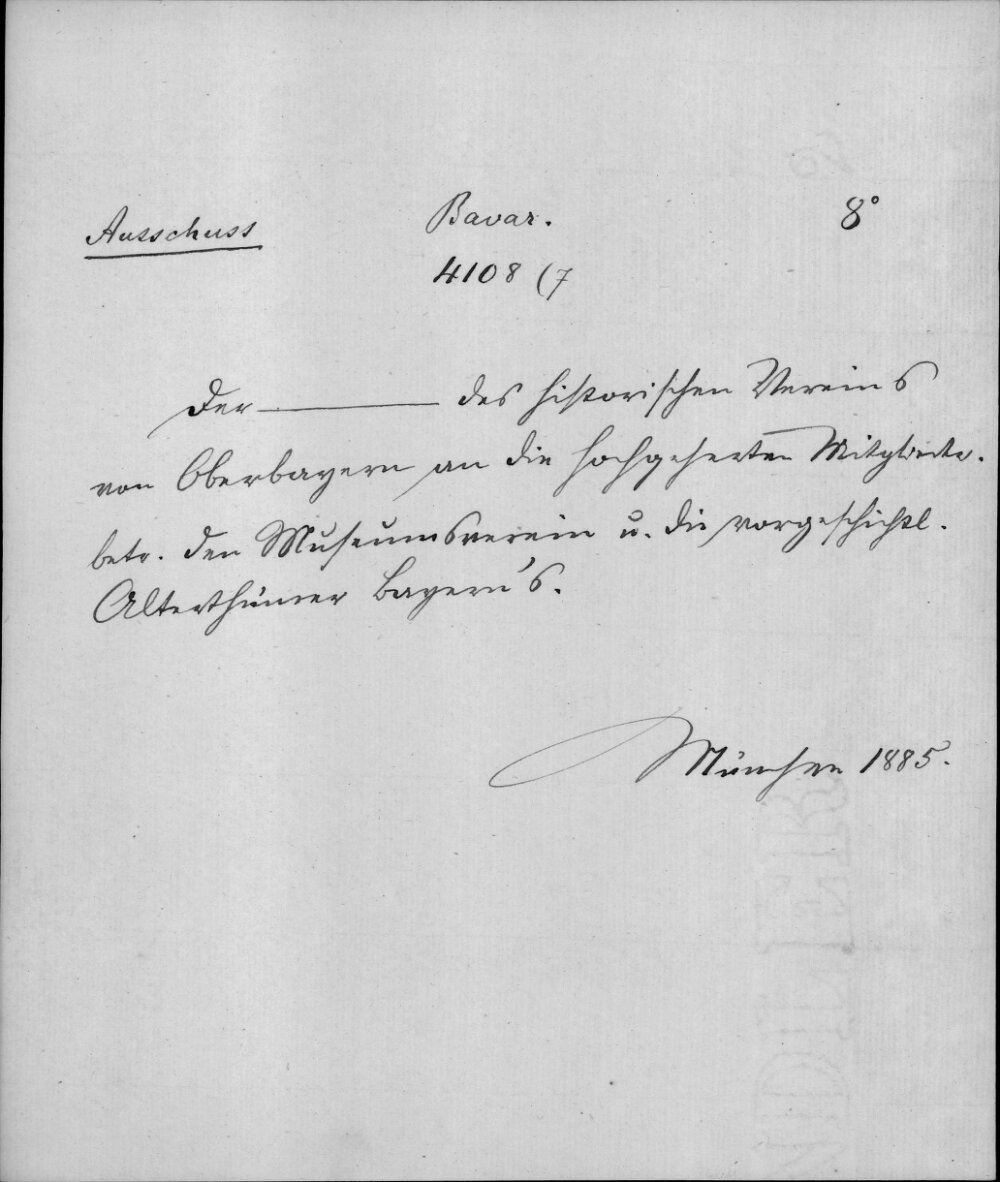 Ausschuss Bavar. 8°
4108 (7
Der ——— des historischen Vereins
von Oberbayern an die hochgeehrten Mitglieder.
betr. den Museumsverein u. die vorgeschichtl.
Alterthümer Bayern's.
München 1885.